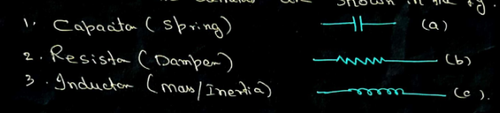 are shown in the fig.
1. Capacitor (Spring) (a)
2. Resistor (Damper) (b)
3. Inductor (Mass/Inertia) (c).